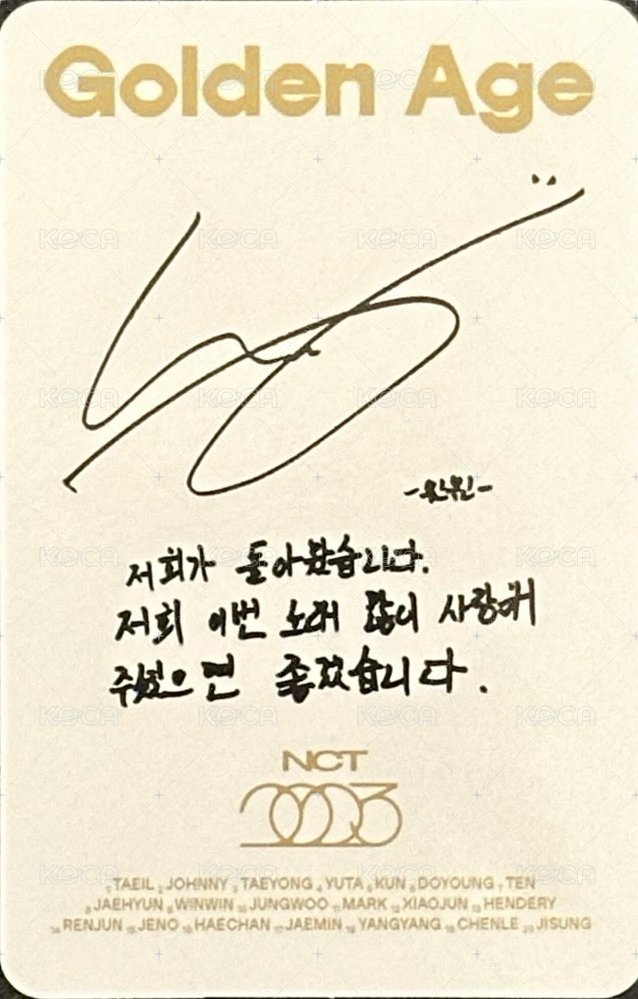 Golden Age
저희가 돌아왔습니다.
저희 이번 노래 많이 사랑해
주셨으면 좋겠습니다.
NCT
2023
1 TAEIL 2 JOHNNY 3 TAEYONG 4 YUTA 5 KUN 6 DOYOUNG 7 TEN
8 JAEHYUN 9 WINWIN 10 JUNGWOO 11 MARK 12 XIAOJUN 13 HENDERY
14 RENJUN 15 JENO 16 HAECHAN 17 JAEMIN 18 YANGYANG 19 CHENLE 20 JISUNG
KOCA